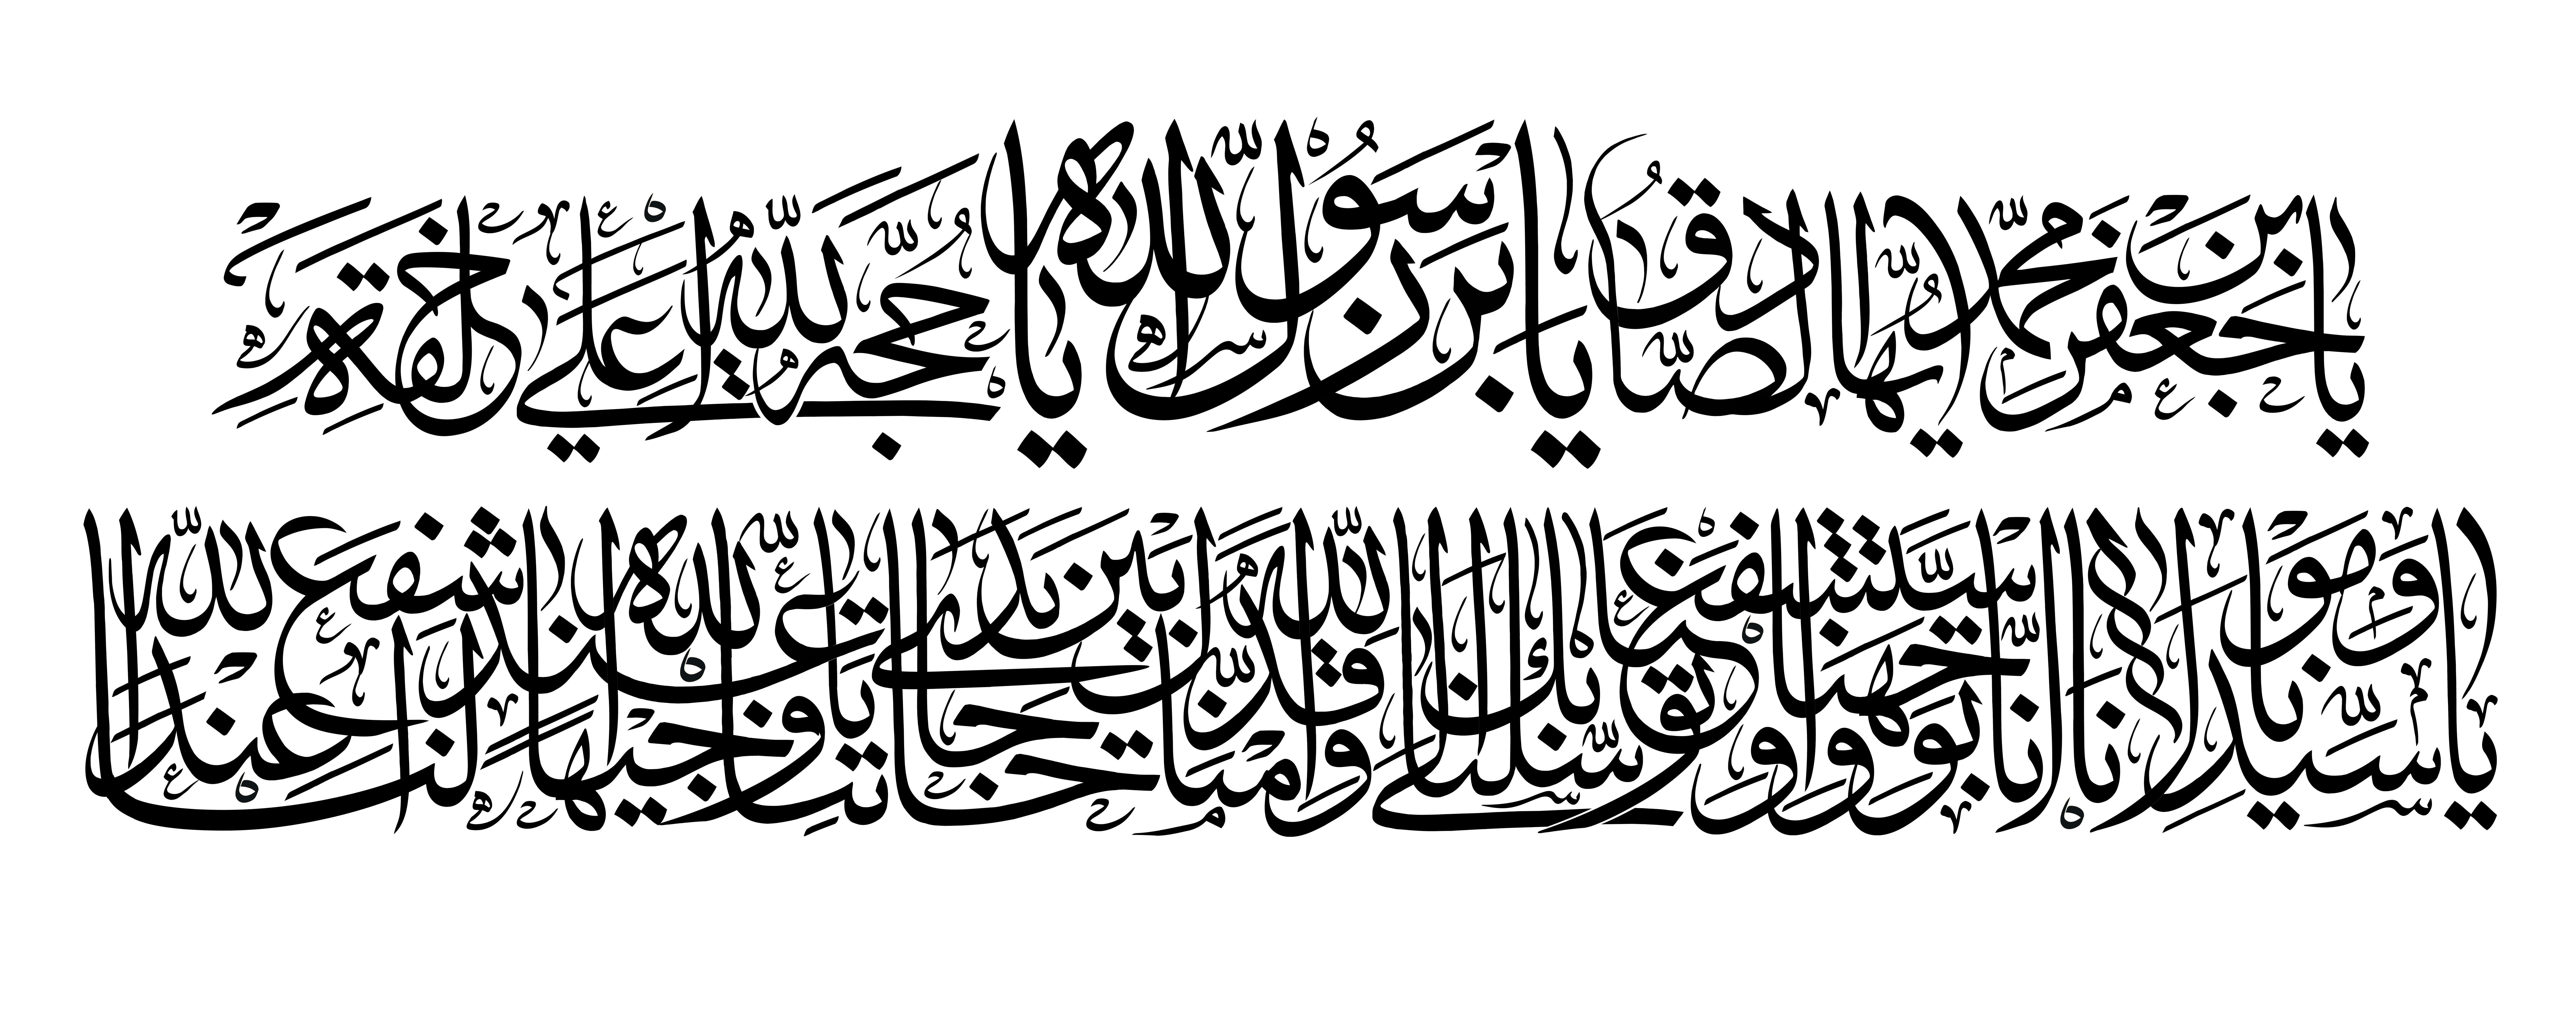 يا جعفر بن محمد ايها الصادق يا بن رسول الله يا حجة الله على خلقه
يا سيدنا ومولانا انا توجهنا واستشفعنا وتوسلنا بك الى الله وقدمناك بين يدي حاجاتنا يا وجيها عند الله اشفع لنا عند الله